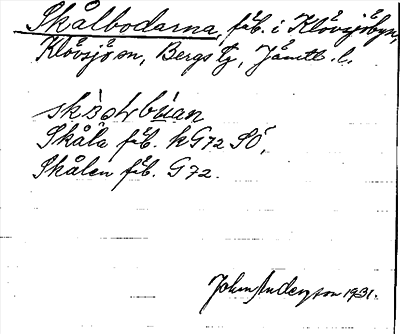 Skålbodarna, fäb. i Klövsjöbyn,
Klövsjö sn, Bergs tg, Jämtl. l.
Skåla fäb. kG72 SÖ,
Skålen fäb. G72.
John Anderson 1931.